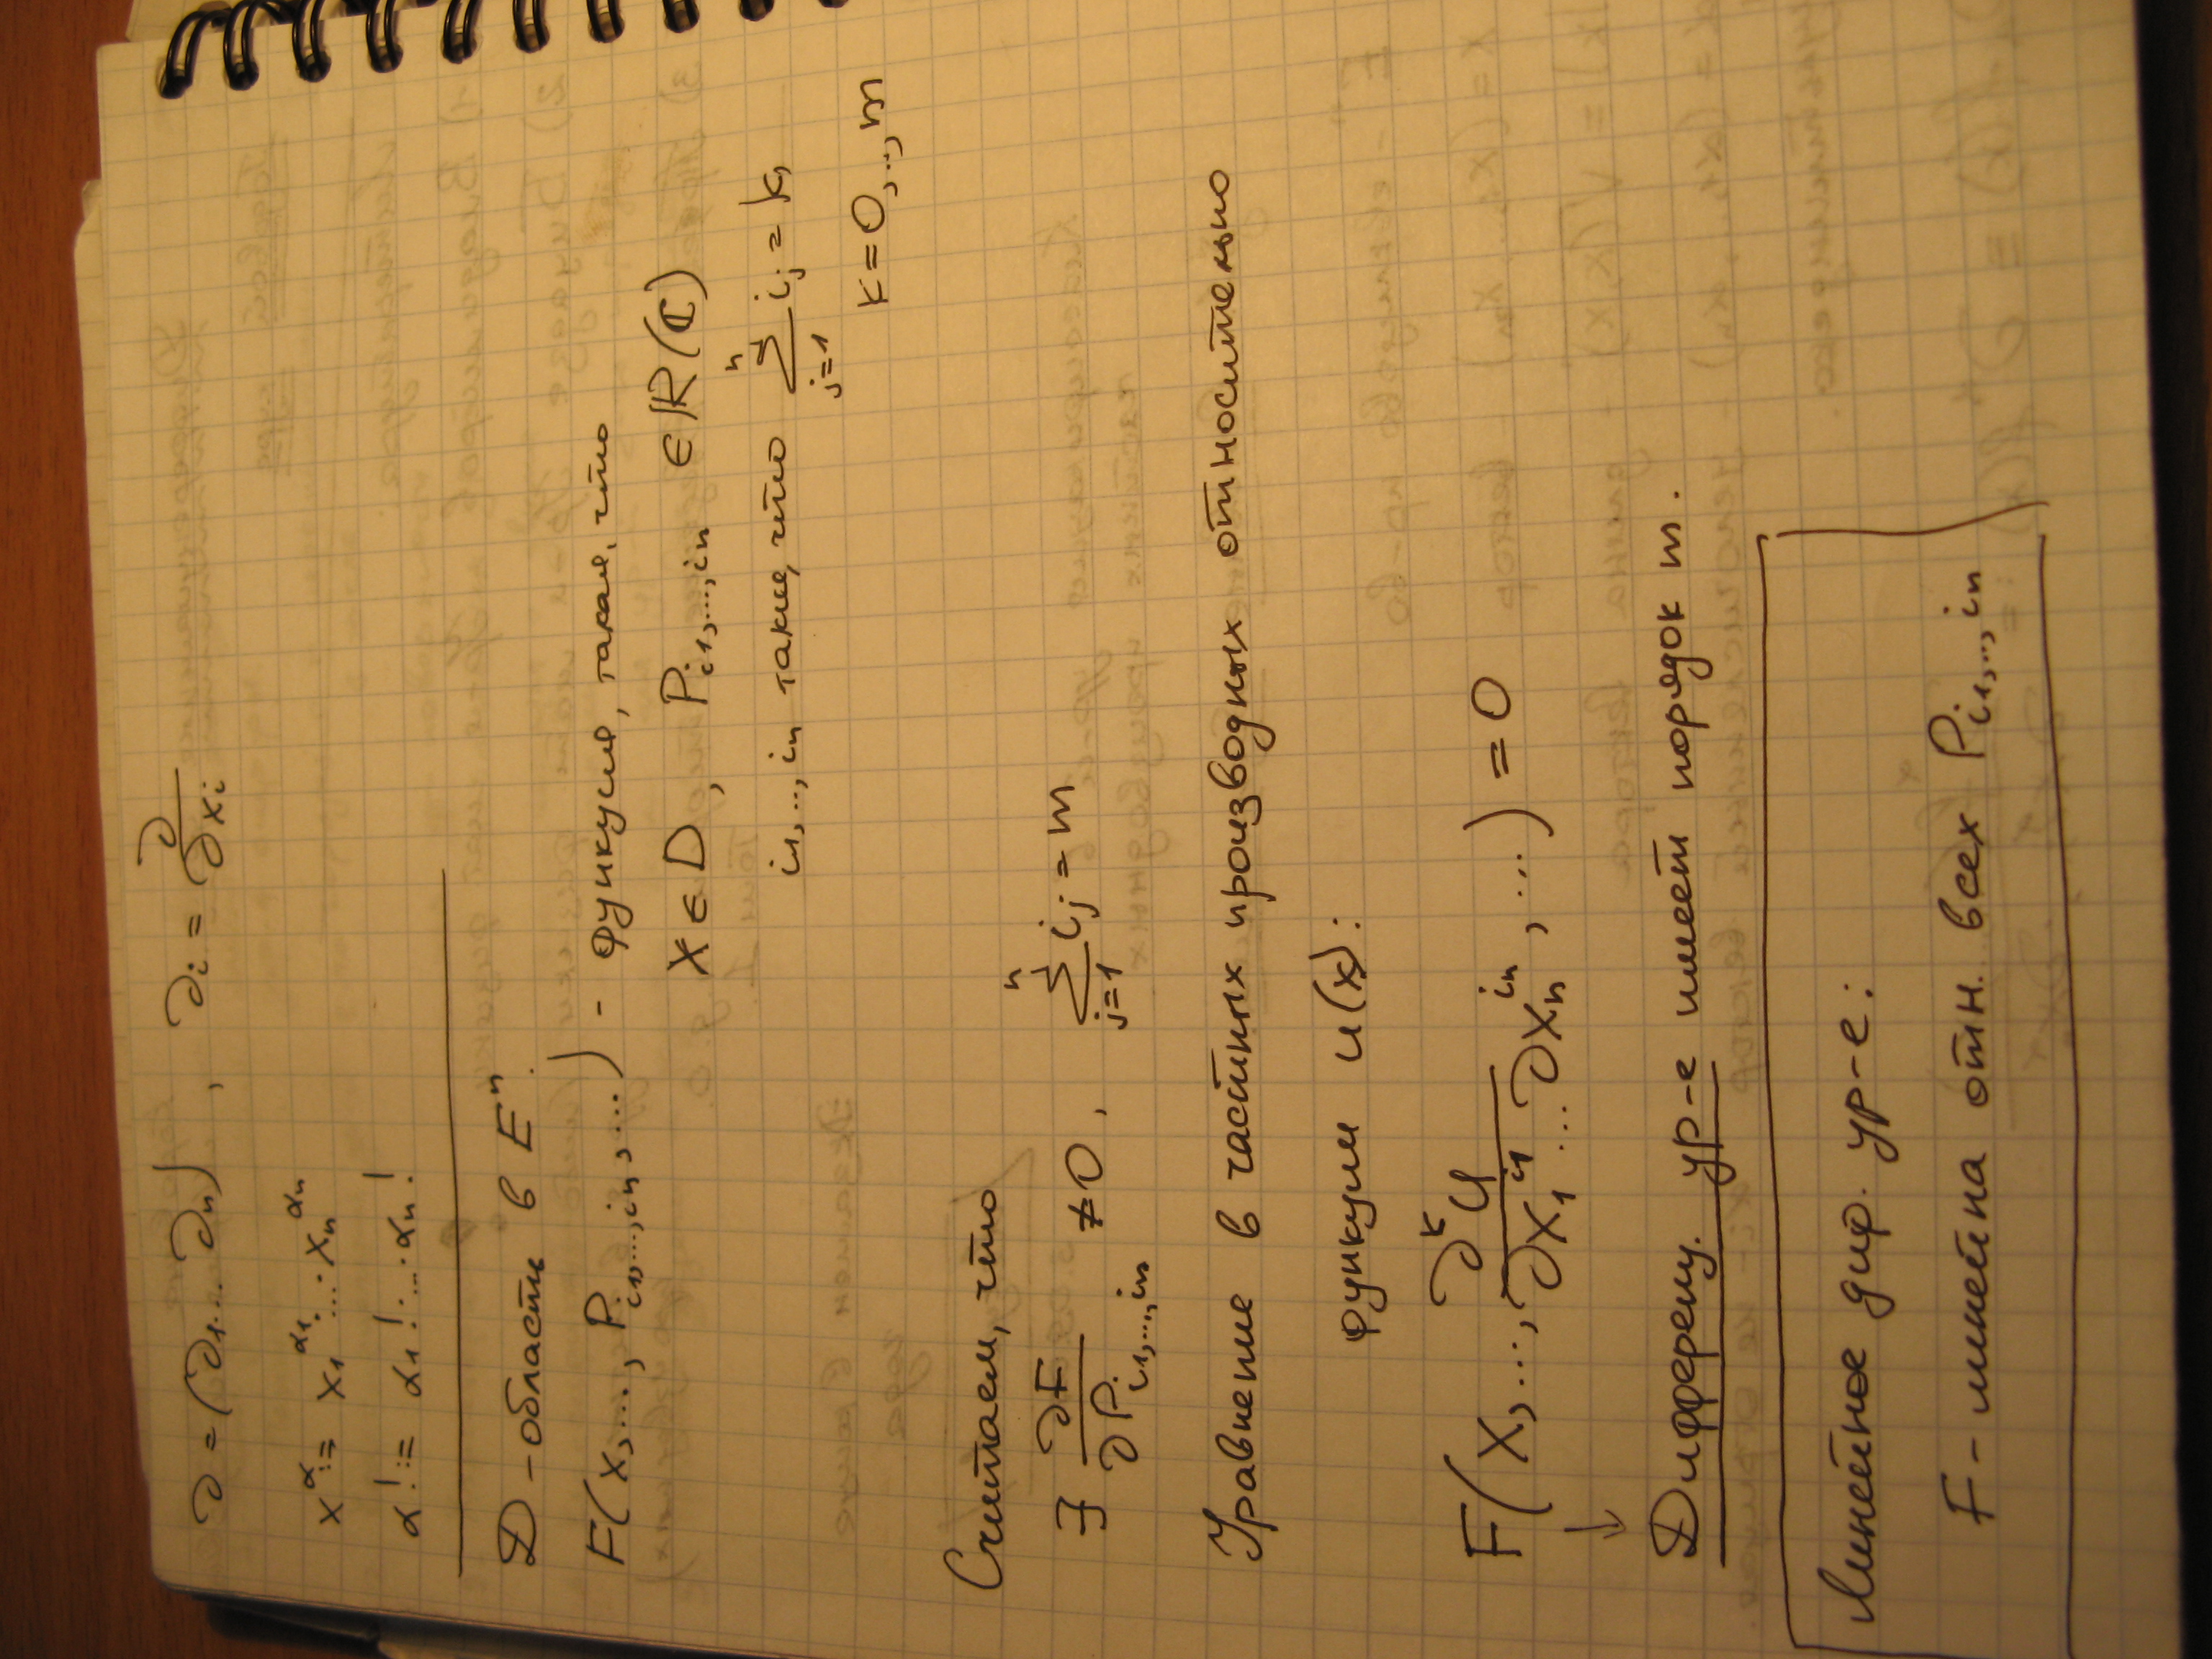 ∂ = (∂₁... ∂ₙ) , ∂ᵢ = ∂/∂xᵢ
x^α := x₁^α₁ · ... · xₙ^αₙ
α! := α₁! · ... · αₙ!
D - область в Eⁿ.
F(x, ..., P_{i₁,...,iₙ}, ...) - функция, такая, что
x ∈ D, P_{i₁,...,iₙ} ∈ ℝ(ℂ)
i₁, ..., iₙ такие, что ∑_{j=1}^{n} i_j = k,
k = 0, ..., m
Считаем, что
∃ ∂F/∂P_{i₁,...,iₙ} ≠ 0, ∑_{j=1}^{n} i_j = m
Уравнение в частных производных относительно
функции u(x):
F(x, ..., ∂^k u/∂x₁^{i₁}...∂xₙ^{iₙ}, ...) = 0
↓
Дифференц. ур-е имеет порядок m.
Линейное диф. ур-е:
F - линейна отн. всех P_{i₁,...,iₙ}